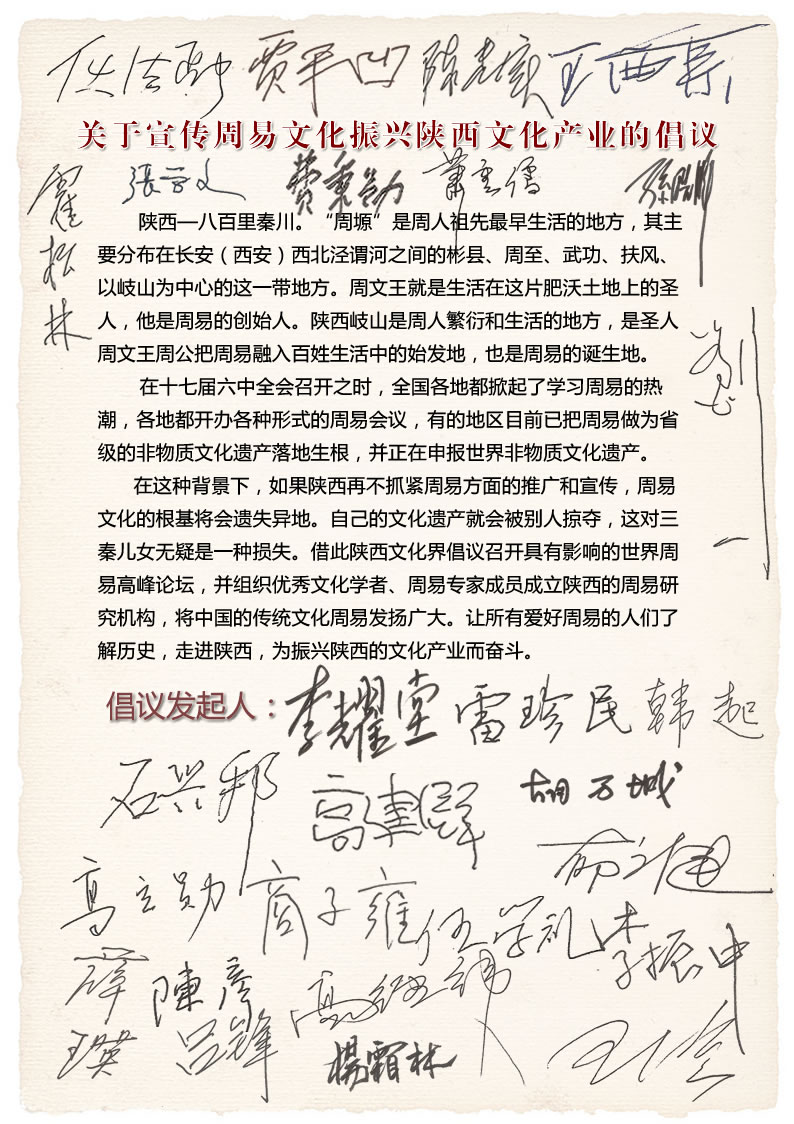 任法融 贾平凹 陈忠实 王西京
关于宣传周易文化振兴陕西文化产业的倡议
霍松林
張 文 费秉勋 萧云儒 孙
陕西—八百里秦川。“周塬”是周人祖先最早生活的地方，其主
要分布在长安（西安）西北泾谓河之间的彬县、周至、武功、扶风、
以岐山为中心的这一带地方。周文王就是生活在这片肥沃土地上的圣
人，他是周易的创始人。陕西岐山是周人繁衍和生活的地方，是圣人
周文王周公把周易融入百姓生活中的始发地，也是周易的诞生地。
在十七届六中全会召开之时，全国各地都掀起了学习周易的热
潮，各地都开办各种形式的周易会议，有的地区目前已把周易做为省
级的非物质文化遗产落地生根，并正在申报世界非物质文化遗产。
在这种背景下，如果陕西再不抓紧周易方面的推广和宣传，周易
文化的根基将会遗失异地。自己的文化遗产就会被别人掠夺，这对三
秦儿女无疑是一种损失。借此陕西文化界倡议召开具有影响的世界周
易高峰论坛，并组织优秀文化学者、周易专家成员成立陕西的周易研
究机构，将中国的传统文化周易发扬广大。让所有爱好周易的人们了
解历史，走进陕西，为振兴陕西的文化产业而奋斗。
倡议发起人：李耀堂 雷珍民 韩起
石兴邦 高建群 胡万城
高立勋 商子雍 伍学礼 李振中
薛瑛 陳彦 吕峰 高 
楊霜林 王